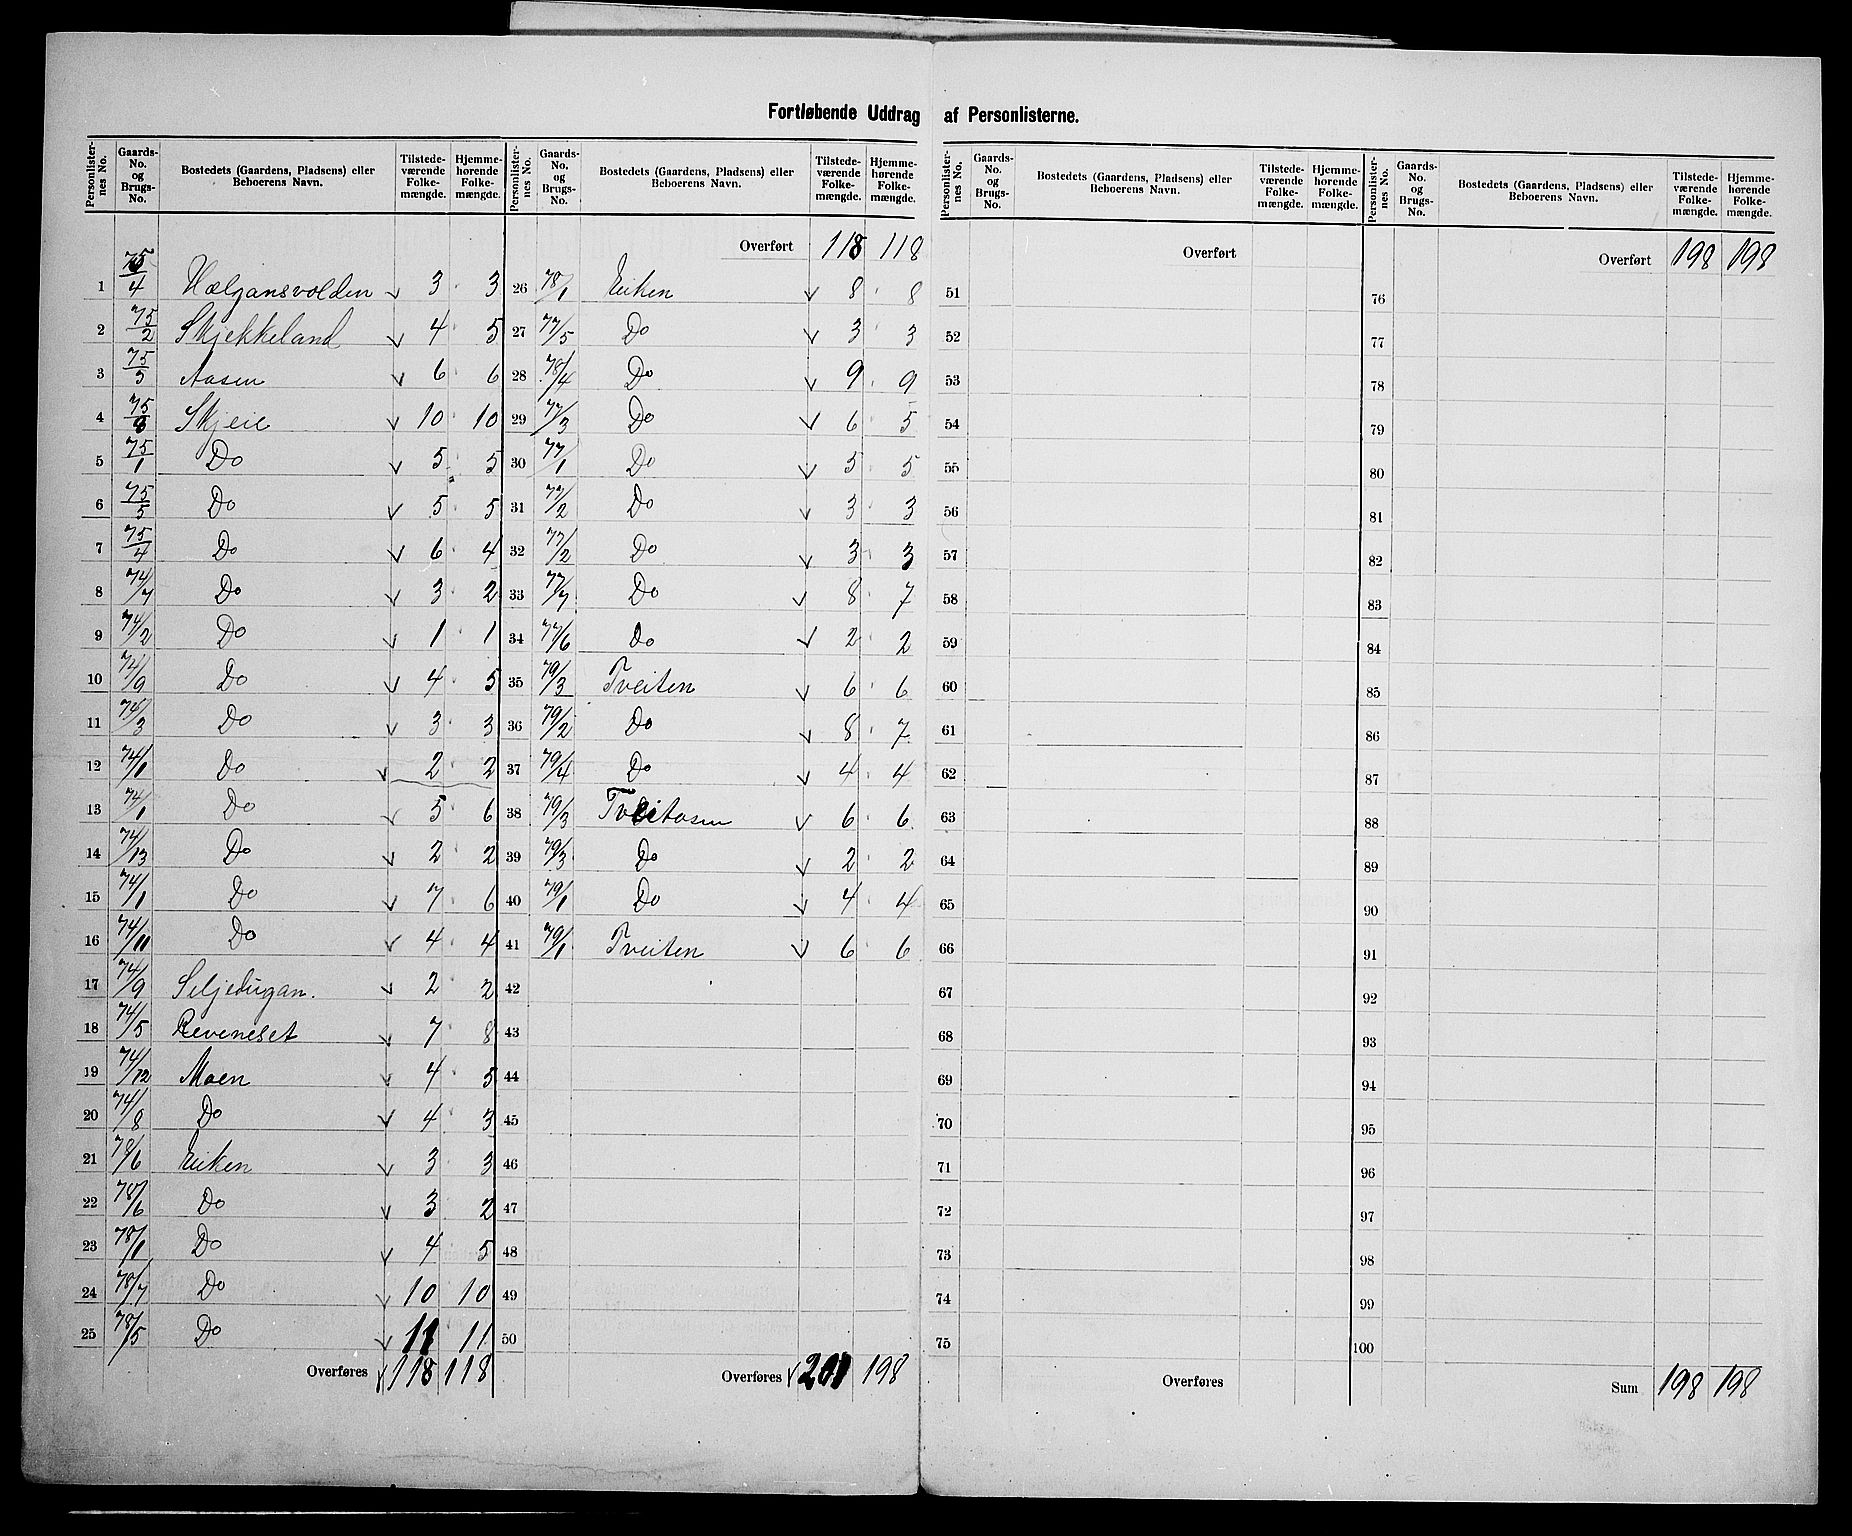 Fortløbende Uddrag af Personlisterne.
Personlister-nes No. | Gaards-No. og Brugs-No. | Bostedets (Gaardens, Pladsens) eller Beboerens Navn. | Tilstede-værende Folke-mængde. | Hjemme-hørende Folke-mængde.
1 75/4 Hælgansvolden 3 3
2 75/2 Skjekkeland 4 5
3 75/3 Aasen 6 6
4 75/6 Skjeie 10 10
5 75/1 Do 5 5
6 75/5 Do 5 5
7 75/4 Do 6 4
8 74/7 Do 3 2
9 74/2 Do 1 1
10 74/9 Do 4 5
11 74/3 Do 3 3
12 74/1 Do 2 2
13 74/1 Do 5 6
14 74/13 Do 2 2
15 74/1 Do 7 6
16 74/11 Do 4 4
17 74/9 Seljedugan. 2 2
18 74/5 Reveneset 7 8
19 74/12 Moen 4 5
20 74/8 Do 4 3
21 78/6 Eiken 3 3
22 78/6 Do 3 2
23 78/1 Do 4 5
24 78/7 Do 10 10
25 78/5 Do 11 11
Overføres 118 118
Personlister-nes No. | Gaards-No. og Brugs-No. | Bostedets (Gaardens, Pladsens) eller Beboerens Navn. | Tilstede-værende Folke-mængde. | Hjemme-hørende Folke-mængde.
Overført 118 118
26 78/1 Eiken 8 8
27 77/5 Do 3 3
28 78/4 Do 9 9
29 77/3 Do 6 5
30 77/1 Do 5 5
31 77/2 Do 3 3
32 77/2 Do 3 3
33 77/7 Do 8 7
34 77/6 Do 2 2
35 79/3 Tveiten 6 6
36 79/2 Do 8 7
37 79/4 Do 4 4
38 79/3 Tveitaasen 6 6
39 79/3 Do 2 2
40 79/1 Do 4 4
41 79/1 Tveiten 6 6
42
43
44
45
46
47
48
49
50
Overføres 201 198
Personlister-nes No. | Gaards-No. og Brugs-No. | Bostedets (Gaardens, Pladsens) eller Beboerens Navn. | Tilstede-værende Folke-mængde. | Hjemme-hørende Folke-mængde.
Overført
51
52
53
54
55
56
57
58
59
60
61
62
63
64
65
66
67
68
69
70
71
72
73
74
75
Overføres
Personlister-nes No. | Gaards-No. og Brugs-No. | Bostedets (Gaardens, Pladsens) eller Beboerens Navn. | Tilstede-værende Folke-mængde. | Hjemme-hørende Folke-mængde.
Overført 198 198
76
77
78
79
80
81
82
83
84
85
86
87
88
89
90
91
92
93
94
95
96
97
98
99
100
Sum 198 198